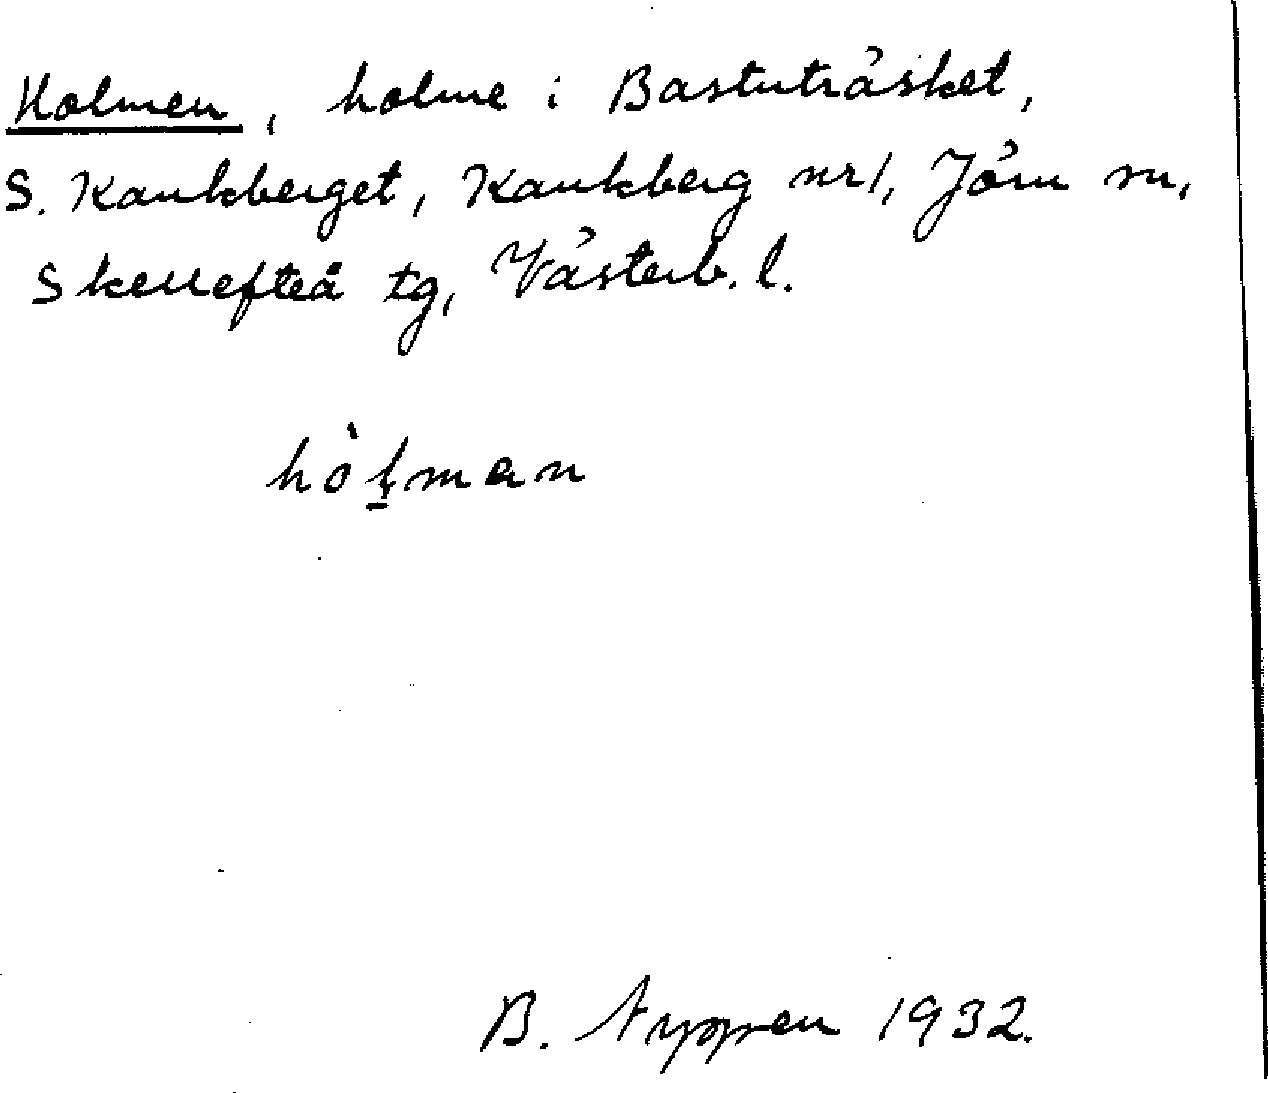 Holmen, holme i Bastuträsket,
S. Kankberget, Kankberg nr 1, Jörn sn,
Skellefteå tg, Västerb. l.
hòl̠man
B. Nyppen 1932.